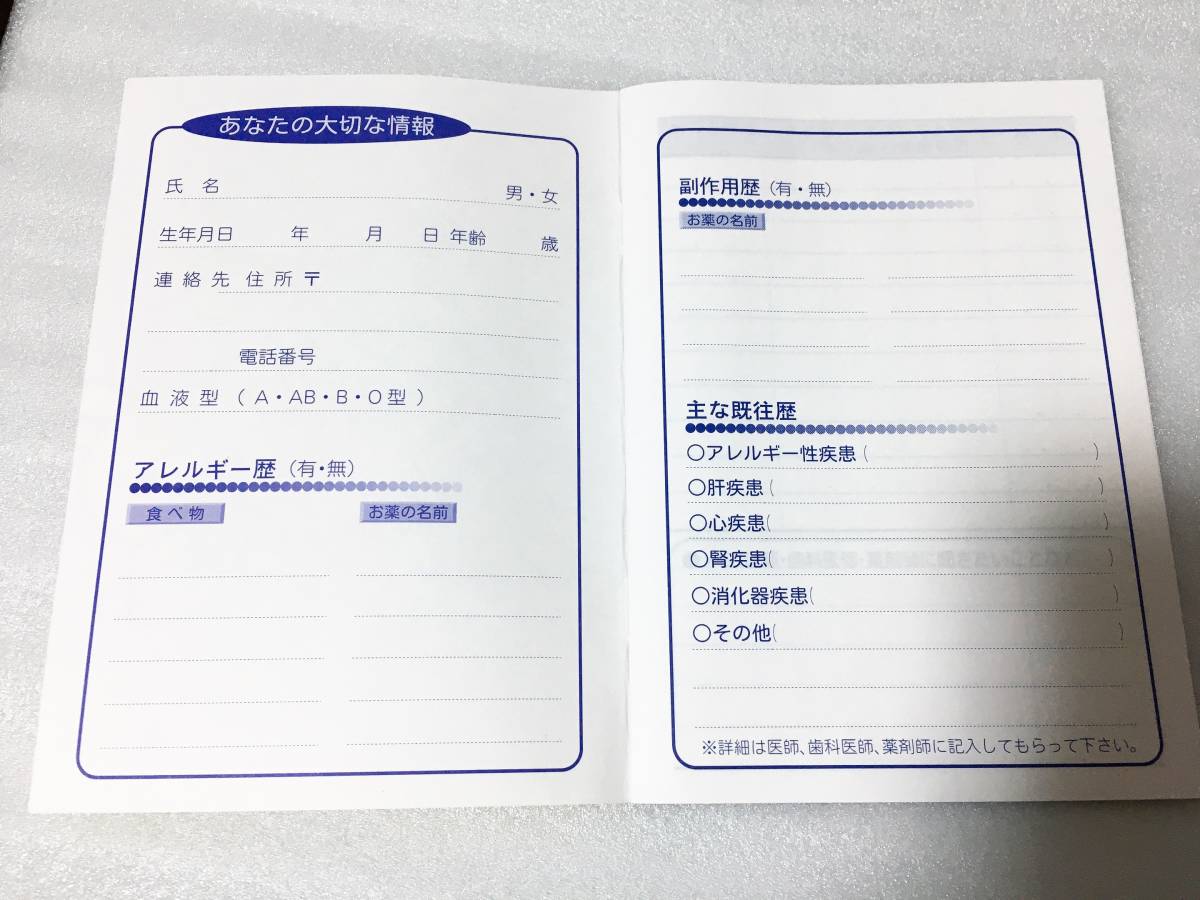 あなたの大切な情報
氏 名 男・女
生年月日 年 月 日 年齢 歳
連絡先 住所 〒
電話番号
血液型 ( A・AB・B・O型 )
アレルギー歴 (有・無)
食べ物 お薬の名前
副作用歴 (有・無)
お薬の名前
主な既往歴
○アレルギー性疾患( )
○肝疾患( )
○心疾患( )
○腎疾患( )
○消化器疾患( )
○その他( )
※詳細は医師、歯科医師、薬剤師に記入してもらって下さい。